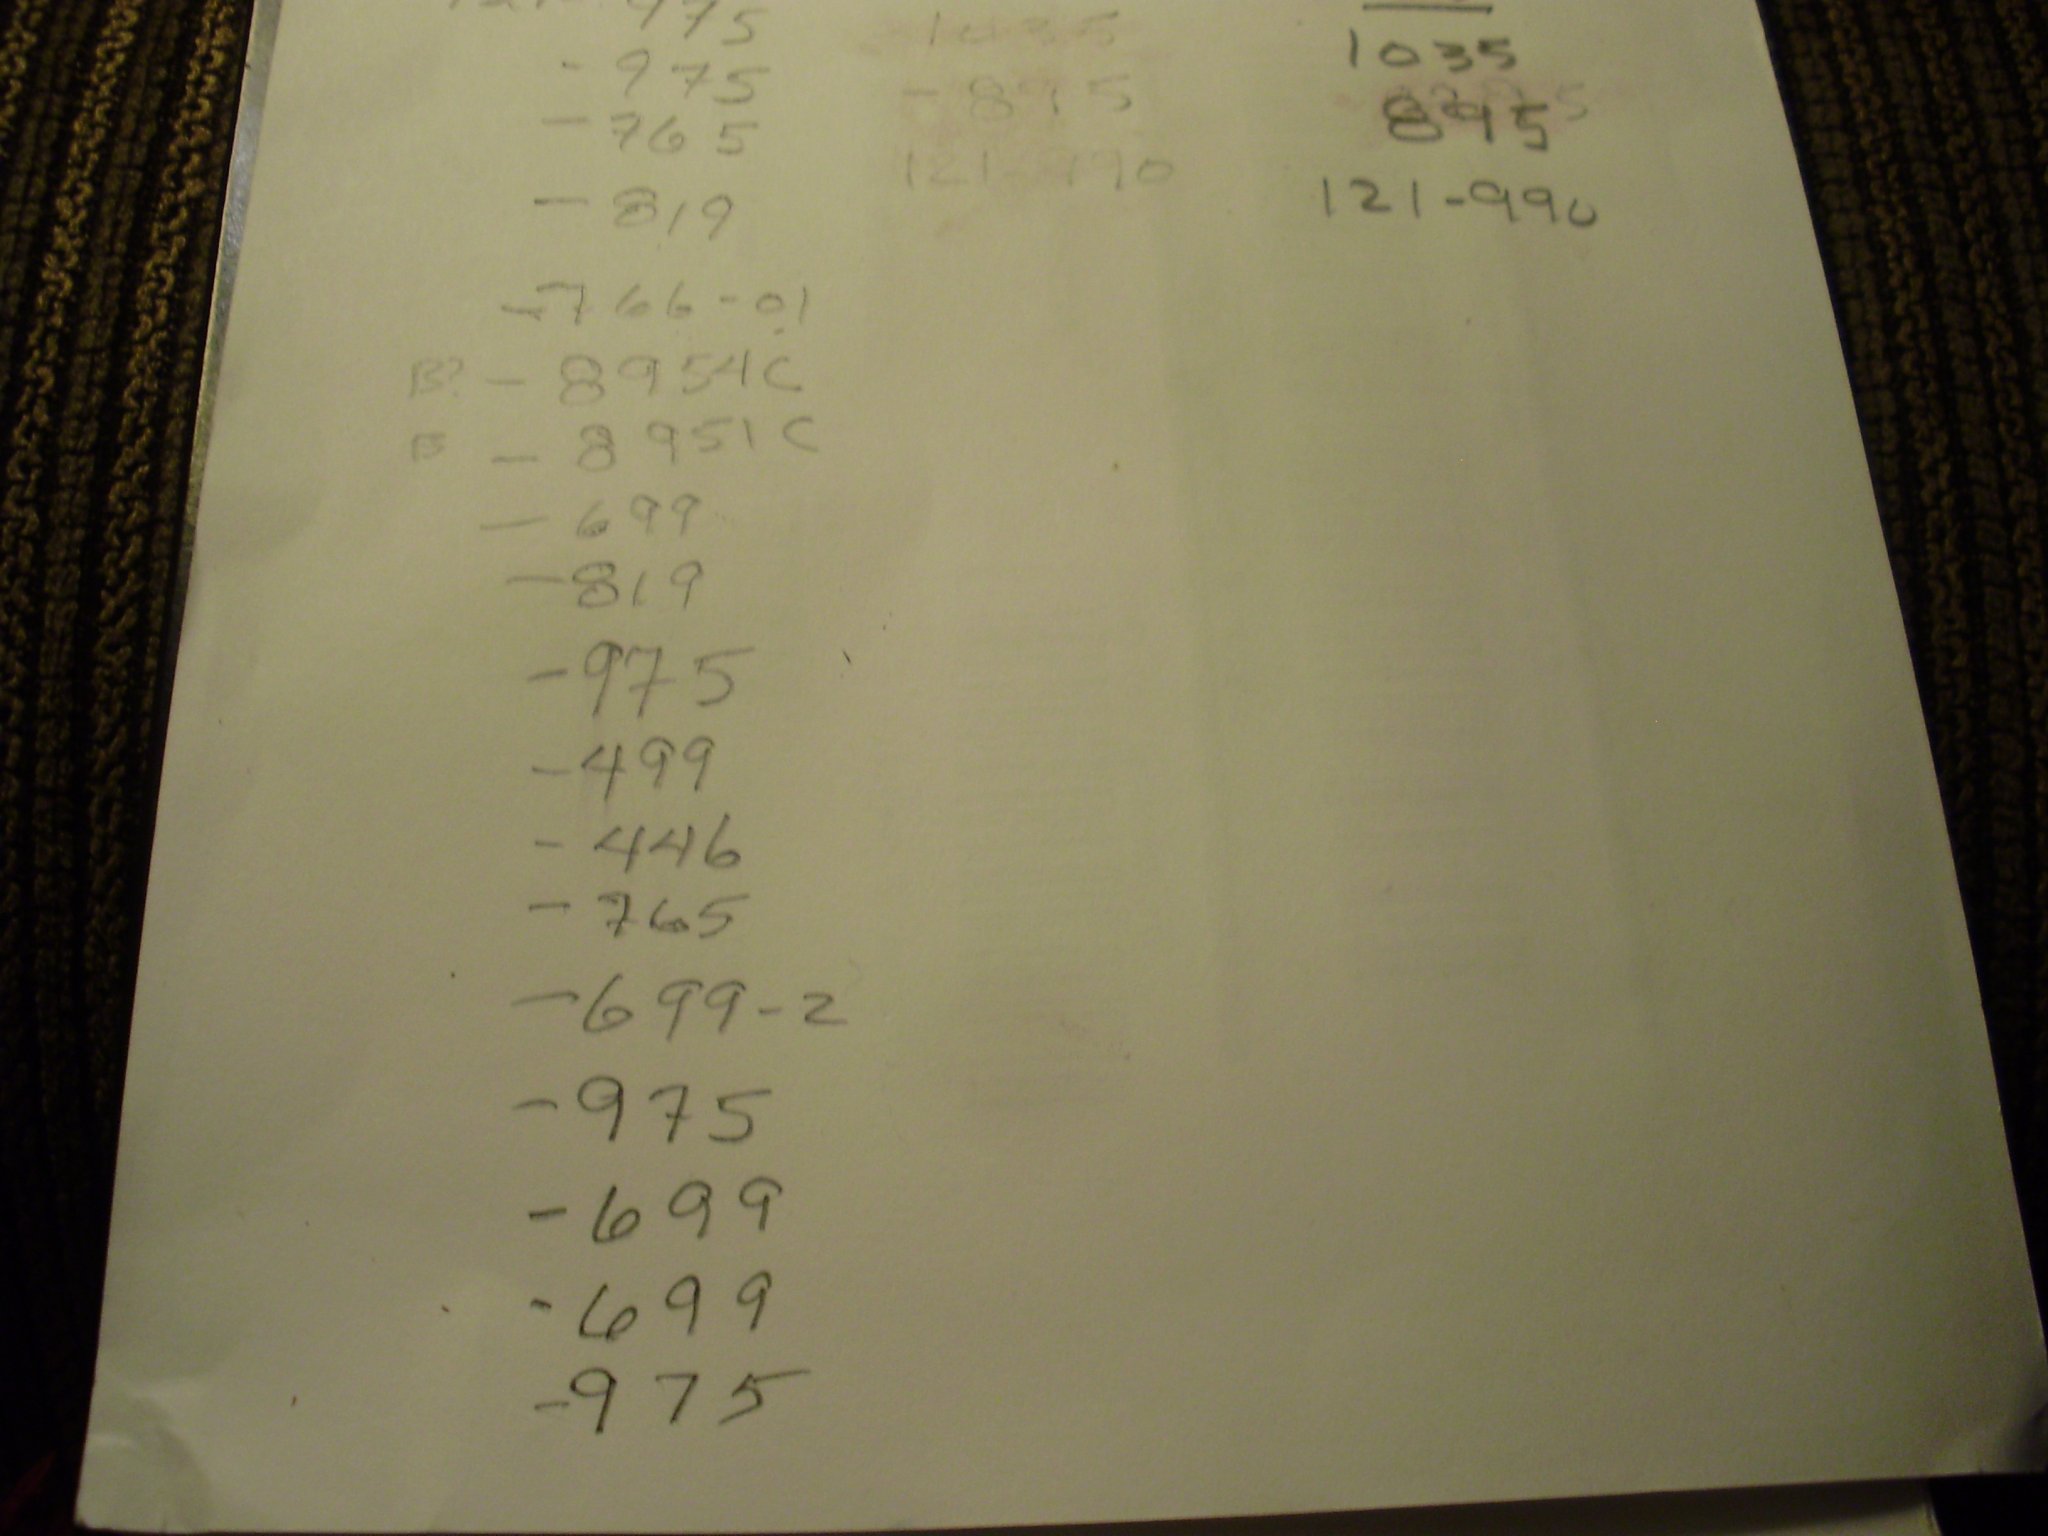 975
- 975
- 765
- 819
- 766-01
B? - 8954C
B - 8951C
- 699
- 819
- 975
- 499
- 446
- 765
- 699-2
- 975
- 699
- 699
- 975
1035
- 895
121-990
1035
895
121-990